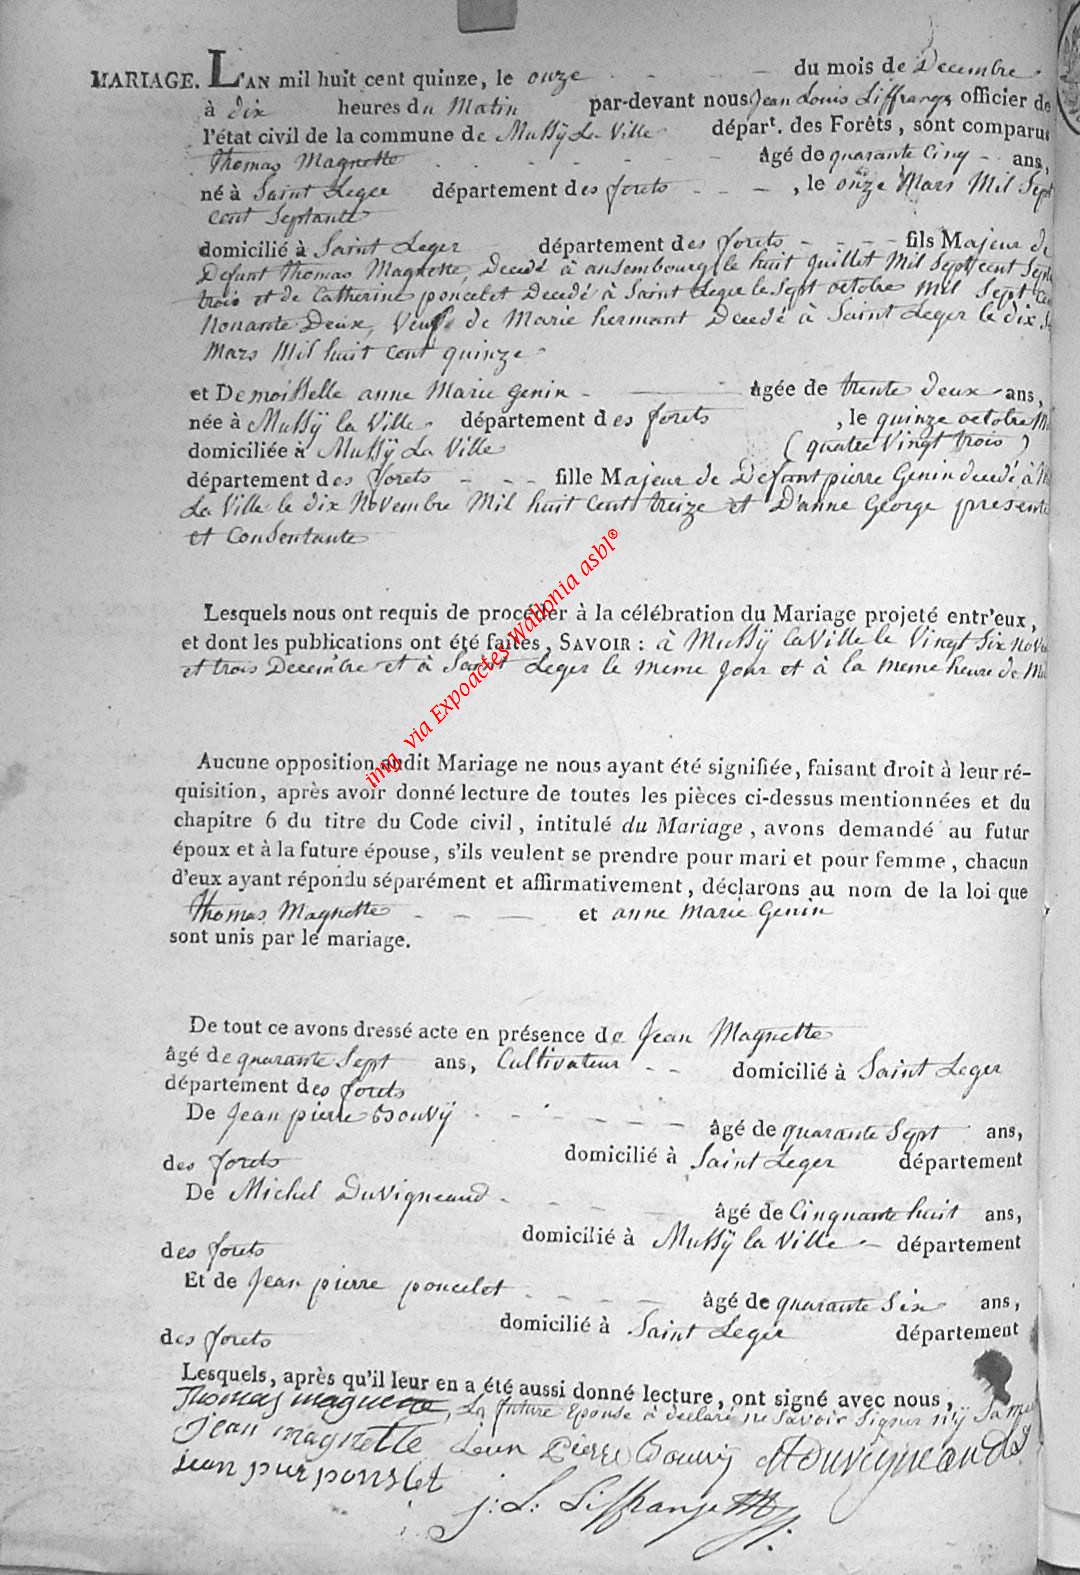 MARIAGE. L'AN mil huit cent quinze, le onze du mois de Decembre
à dix heures du Matin par-devant nous Jean Louis Siffranges officier de
l'état civil de la commune de Mussÿ La Ville départ. des Forêts, sont comparus
Thomas Magnette âgé de quarante Cinq ans,
né à Saint Leger département des forets, le onze Mars Mil Sept
cent Septante
domicilié à Saint Leger département des forets fils Majeur de
Defunt thomas Magnette, Decedé à ansembourg le huit juillet Mil Sept cent Septa
trois et de Catherine poncelet Decedé à Saint Leger le Sept octobre Mil Sept Cen
Nonante Deux, Veuf de Marie hermant Decedé à Saint Leger le dix
Mars Mil huit cent quinze
et Demoisselle anne Marie Genin âgée de trente deux ans,
née à Mussÿ la Ville département des forets, le quinze octobre Mi
domiciliée à Mussÿ La Ville (quatre Vingt trois)
département des forets fille Majeur de Defunt pierre Genin decedé à M
La Ville le dix Novembre Mil huit Cent treize et D'anne George presente
et Consentante
Lesquels nous ont requis de procéder à la célébration du Mariage projeté entr'eux,
et dont les publications ont été faites, SAVOIR : à Mussÿ la Ville le Vingt Six Nov
et trois Decembre et à Saint Leger le meme jour et à la meme heure de Mi
Aucune opposition audit Mariage ne nous ayant été signifiée, faisant droit à leur ré-
quisition, après avoir donné lecture de toutes les pièces ci-dessus mentionnées et du
chapitre 6 du titre du Code civil, intitulé du Mariage, avons demandé au futur
époux et à la future épouse, s'ils veulent se prendre pour mari et pour femme, chacun
d'eux ayant répondu séparément et affirmativement, déclarons au nom de la loi que
Thomas Magnette et anne Marie Genin
sont unis par le mariage.
De tout ce avons dressé acte en présence de Jean Magnette
âgé de quarante Sept ans, Cultivateur domicilié à Saint Leger
département des forets
De Jean pierre Bouvÿ âgé de quarante Sept ans,
domicilié à Saint Leger département
des forets
De Michel Duvigneaud âgé de Cinquante huit ans,
domicilié à Mussÿ la Ville département
des forets
Et de Jean pierre poncelet âgé de quarante Six ans,
domicilié à Saint Leger département
des forets
Lesquels, après qu'il leur en a été aussi donné lecture, ont signé avec nous,
Thomas magnette, La future Epouse à declaré ne Savoir Signer
Jean magnette Jean Pierre Bouvÿ
jean pier ponslet
J: L: Siffranges
img. via Expoactes Wallonia asbl®